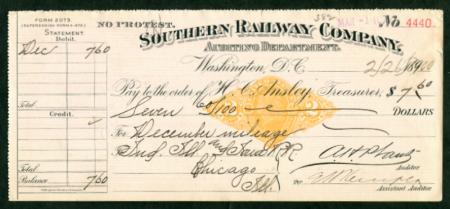 FORM 2073
STATEMENT
Debit.
Dec 760
Total
Credit.
Total
Balance 760
NO PROTEST.
MAR -1 No 4440
SOUTHERN RAILWAY COMPANY,
AUDITING DEPARTMENT.
Washington, D.C. 2/26
Pay to the order of H. C. Ansley Treasurer, $7 60
Seven 60/100 DOLLARS
For December mileage
Ind. Ill. and Iowa R.R.
Chicago
Ill.
Auditor
Per
Assistant Auditor